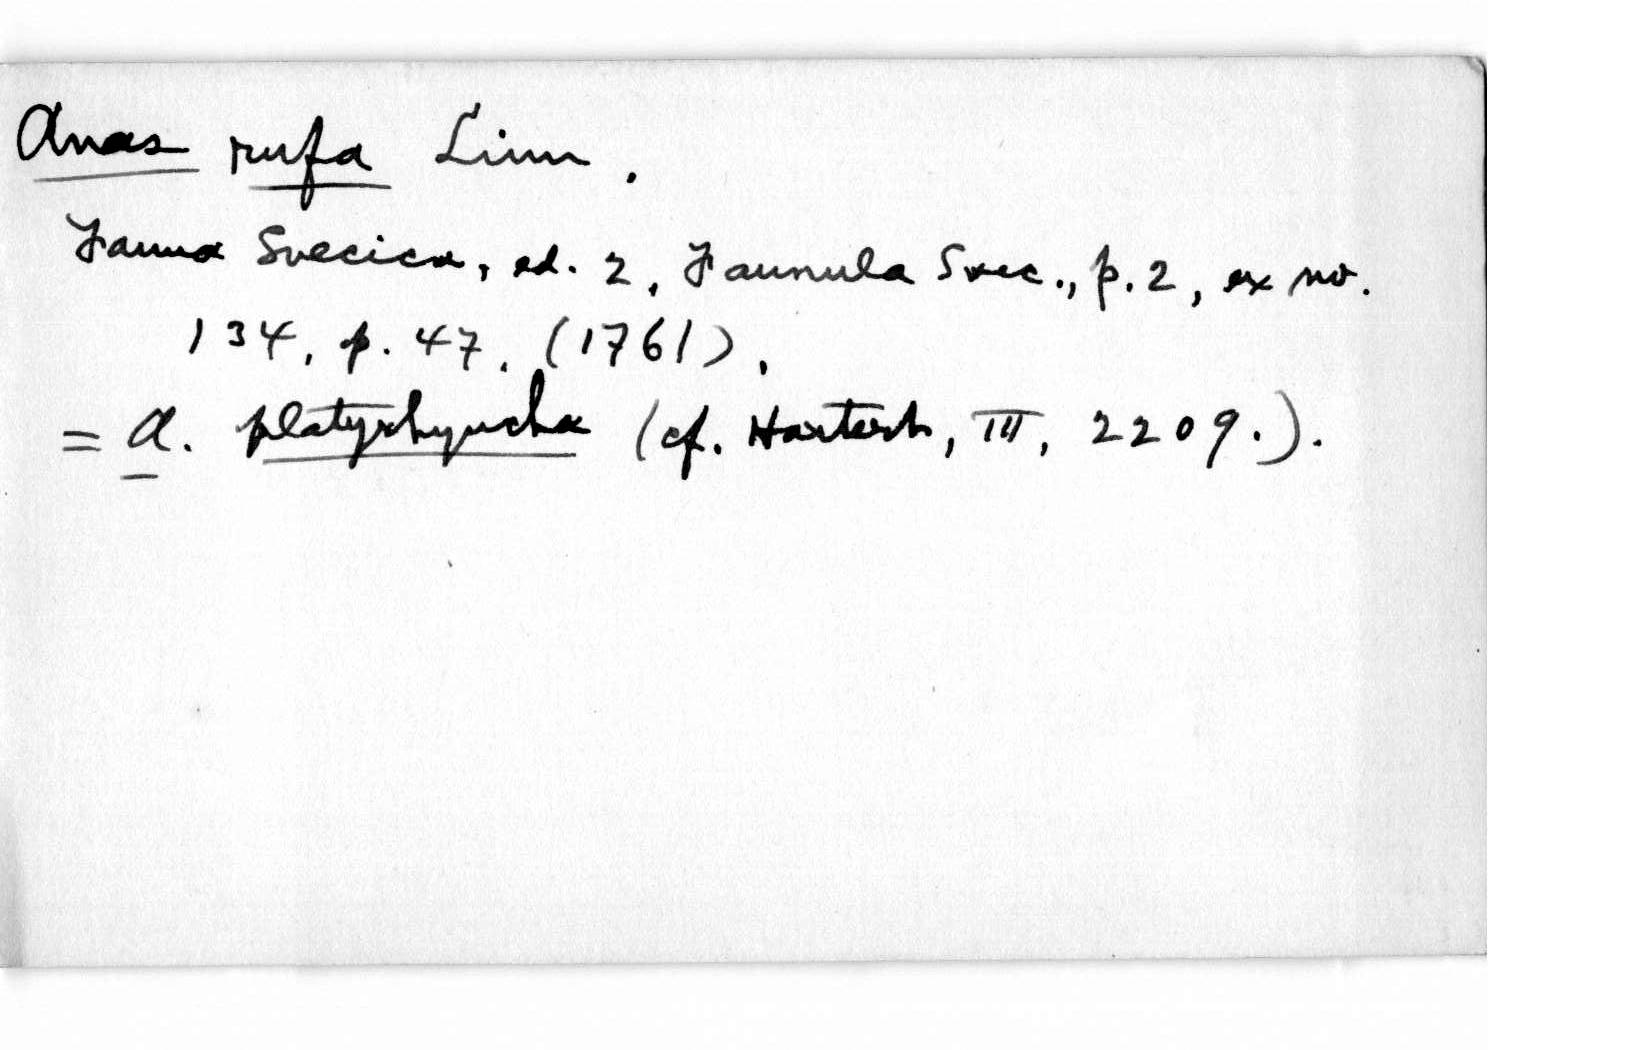 Anas rufa Linn.
Fauna Svecica, ed. 2, Faunula Svec., p. 2, ex no.
134, p. 47. (1761).
= A. platyrhyncha (cf. Hartert, III, 2209.).